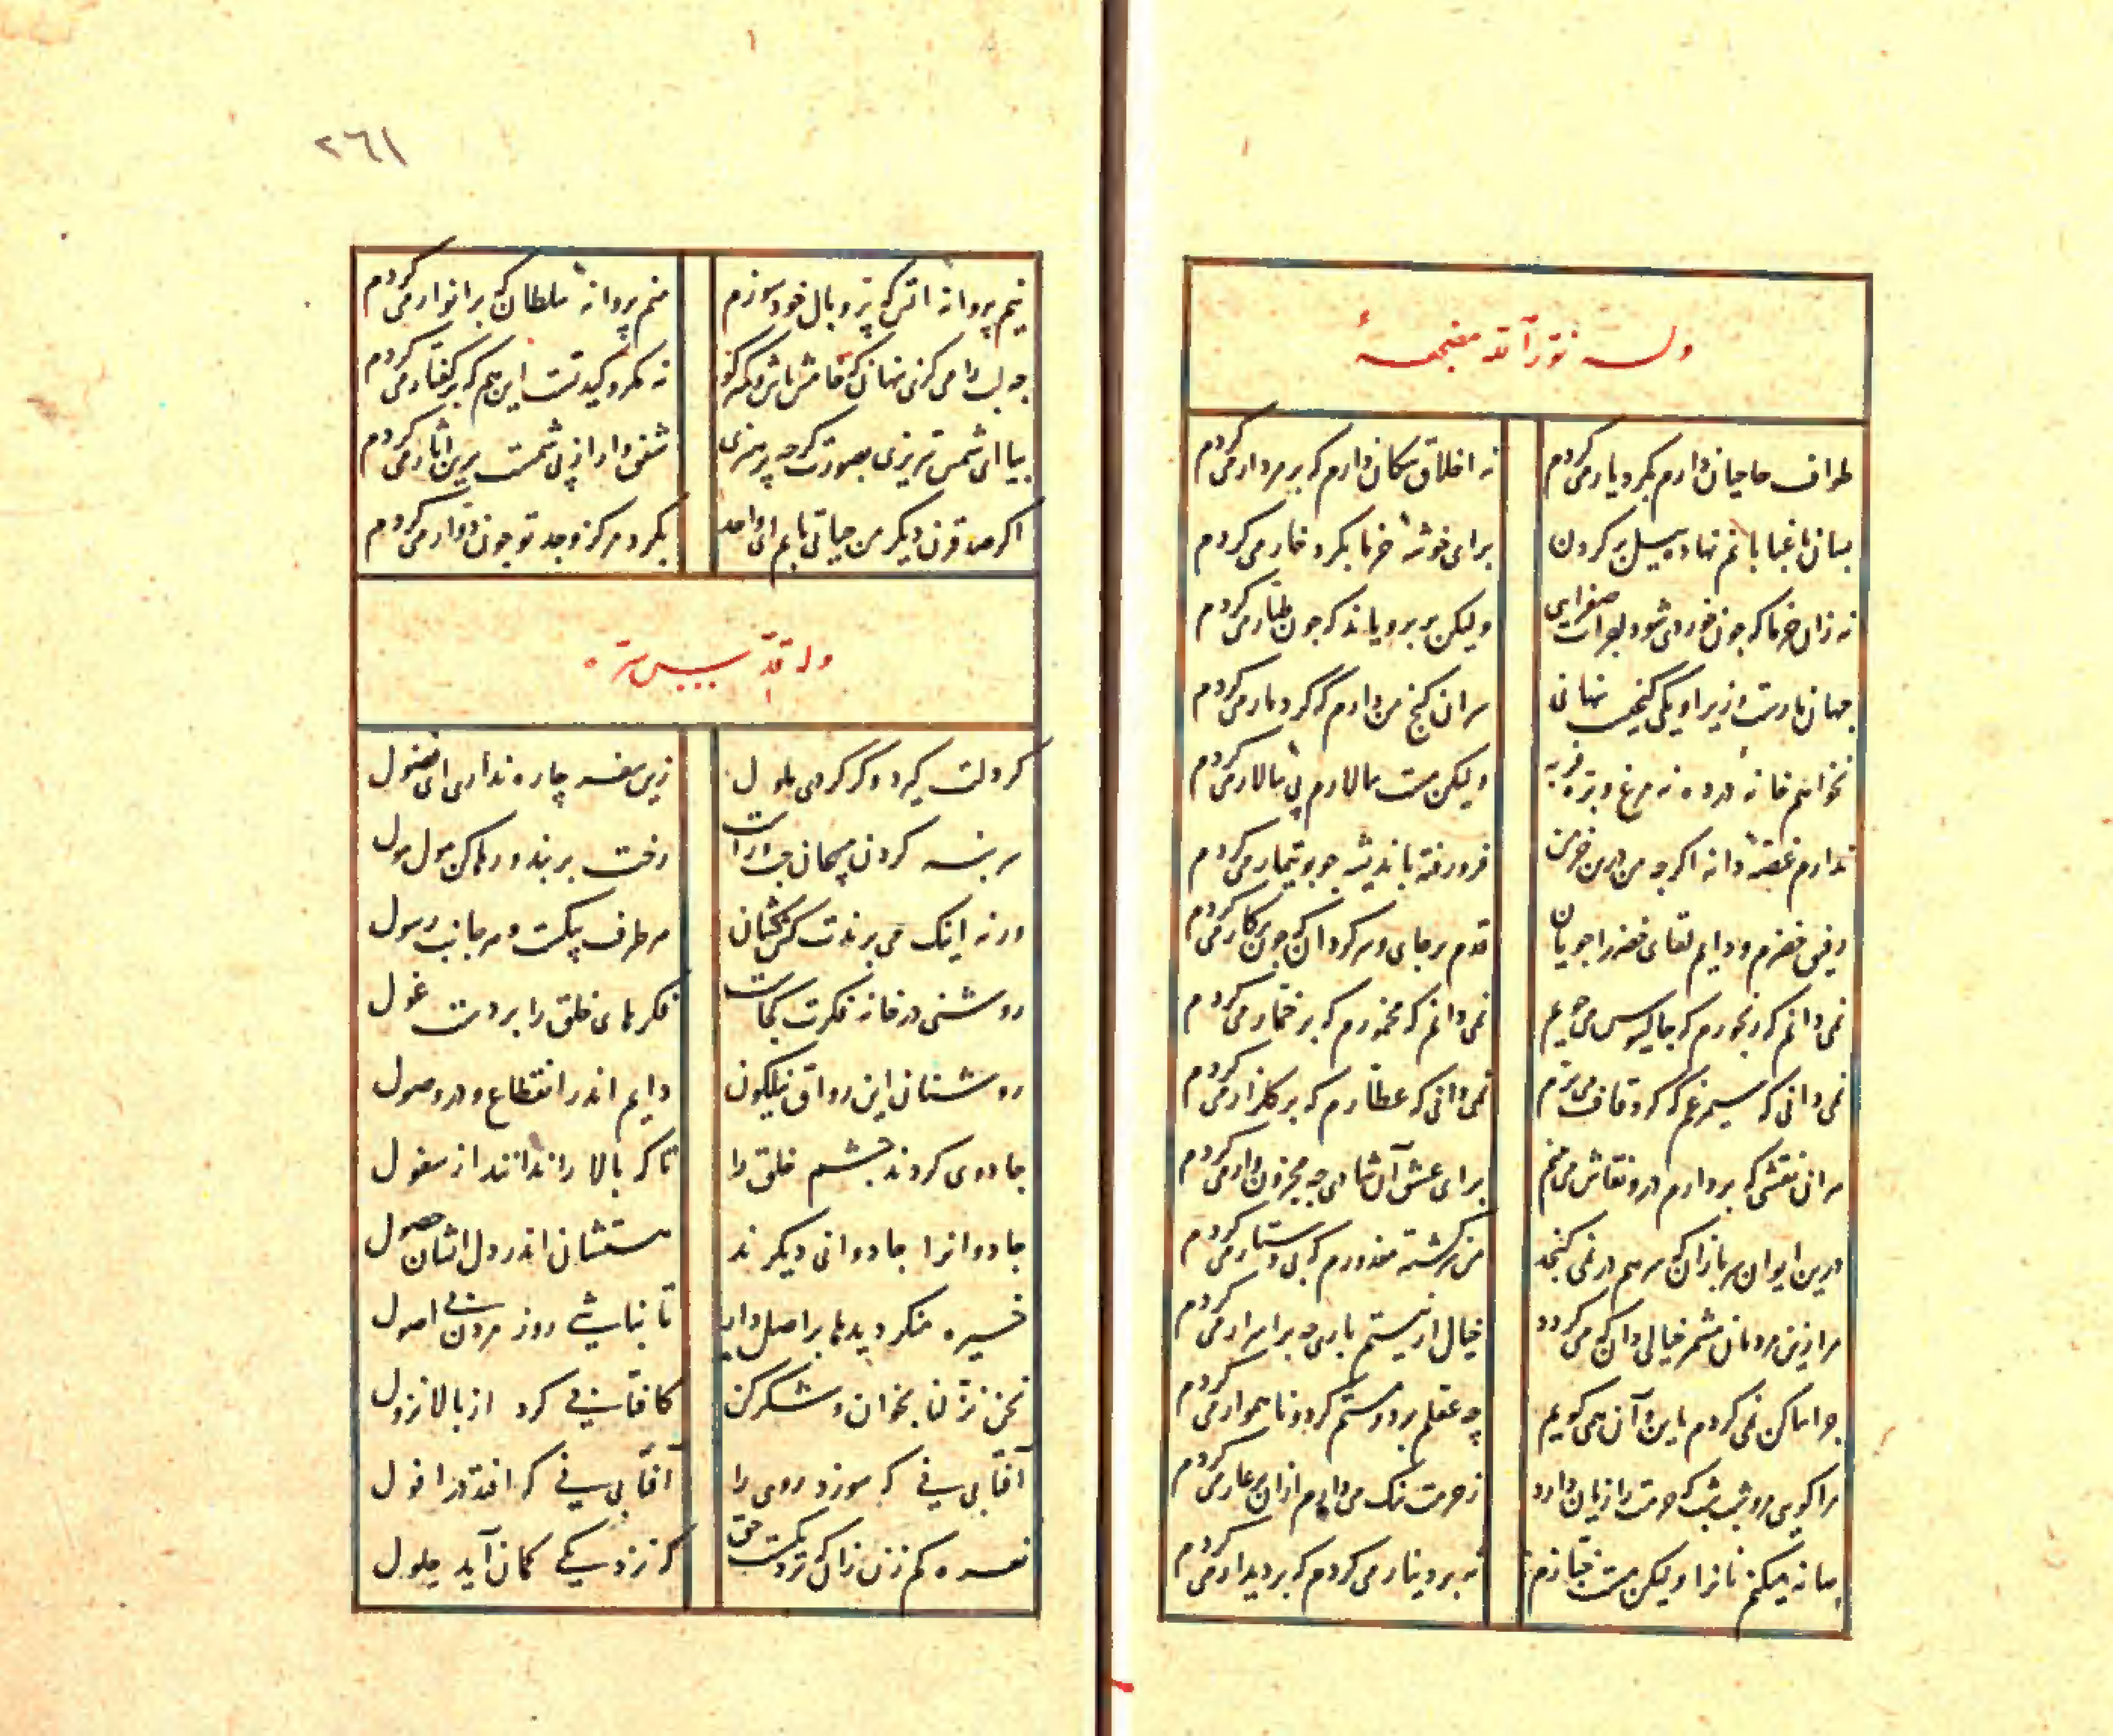 وله نوّر الله مضجعهٔ
طواف حاجیان دارم بکرد یار می کردم نه اخلاق سکان دارم که بر مردار می کردم
بسان باغبابانم نهاده بیل بر کردن برای خوشهٔ خرما بکرد خار می کردم
نه زان خرما که چون خوردی شود بلغم صفرایی ولیکن پر برویاند که چون طیار می کردم
جهان مارست و زیر او یکی کنجیست نهانی سر ان کنج من دارم که کرد مار می کردم
نخواهم خانهٔ در ده نه مرغ و بزه فربه ولیکن مست سالارم پی سالار می کردم
ندارم غصهٔ دانه اکرچه من درین خرمن فرو رفته باندیشه چو بوتیمار می کردم
رفیق خضرم و دایم لقای خضر را جویان قدم بر جای و سرکردان که چون پرکار می کردم
نمی دانم که رنجورم که جالینوس می جویم نمی دانم که مخمورم که بر خمار می کردم
نمی دانی که سیمرغم که کرد قاف می پرم نمی دانی که عطارم که بر کلزار می کردم
مر ان نقشی که بردارم درو نقاش می بینم برای عشق آن شه دان چو مجنون وار می کردم
درین ایوان سربازان که سر هم در نمی کنجد من سرکشته معذورم که بی دستار می کردم
مرا زین مردمان مشمر خیالی دان که می کردد خیال ار نیستم باری چه بر اسرار می کردم
چرا ساکن نمی کردم باین و آن همی کویم چه عقلم برد و مستم کرد و ناهموار می کردم
مرا کویی مرو شبشب که حرمت را زیان دارد ز حرمت ننک می دارم ازان بر عار می کردم
بهانه میکنم نانرا ولیکن مست خبازم نه بر دینار می کردم که بر دیدار می کردم
۲٦۱
نیم پروانهٔ اتش که پر و بال خود سوزم منم پروانهٔ سلطان که بر انوار می کردم
چه لب را می کزی نهان که خامش باش و کم کو نه مکر و کید تست این هم که بر کفتار می کردم
بیا ای شمس تبریزی بصورت کرچه پر مهری شفق وار از پی شمست برین اقطار می کردم
اکر صد قرن دیکر من حیاتی یابم ای واحد بکرد مرکز وجد تو چون دوار می کردم
وله قدّس سره
کر دلت کیرد و کر کردی ملول زین سفر چاره نداری ای فضول
سر بنه کردن پیچان چراست رخت بر بند و رها کن مول مول
ورنه اینک می برندت کش کشان هر طرف پیکست و هر جانب رسول
روشنی در خانهٔ فکرت کجاست فکرهای خلق را بردست غول
روشنان این رواق نیلکون دایم اندر انقطاع و در وصول
جادوی کردند چشم خلق را تا که بالا را ندانند از سفول
جادوانرا جادوانی دیکرند هستشان اندر دل ایشان حصول
خیره منکر دیدها بر اصل دار تا نباشی روز مردن بی اصول
نحن نزلنا بخوان و شکر کن کافتابی کرد از بالا نزول
آفتابی نی که سوزد روی را آفتابی نی که افتد در افول
نعره کم زن زانک نزدیکست حق که ز نزدیکی کمان آید حلول